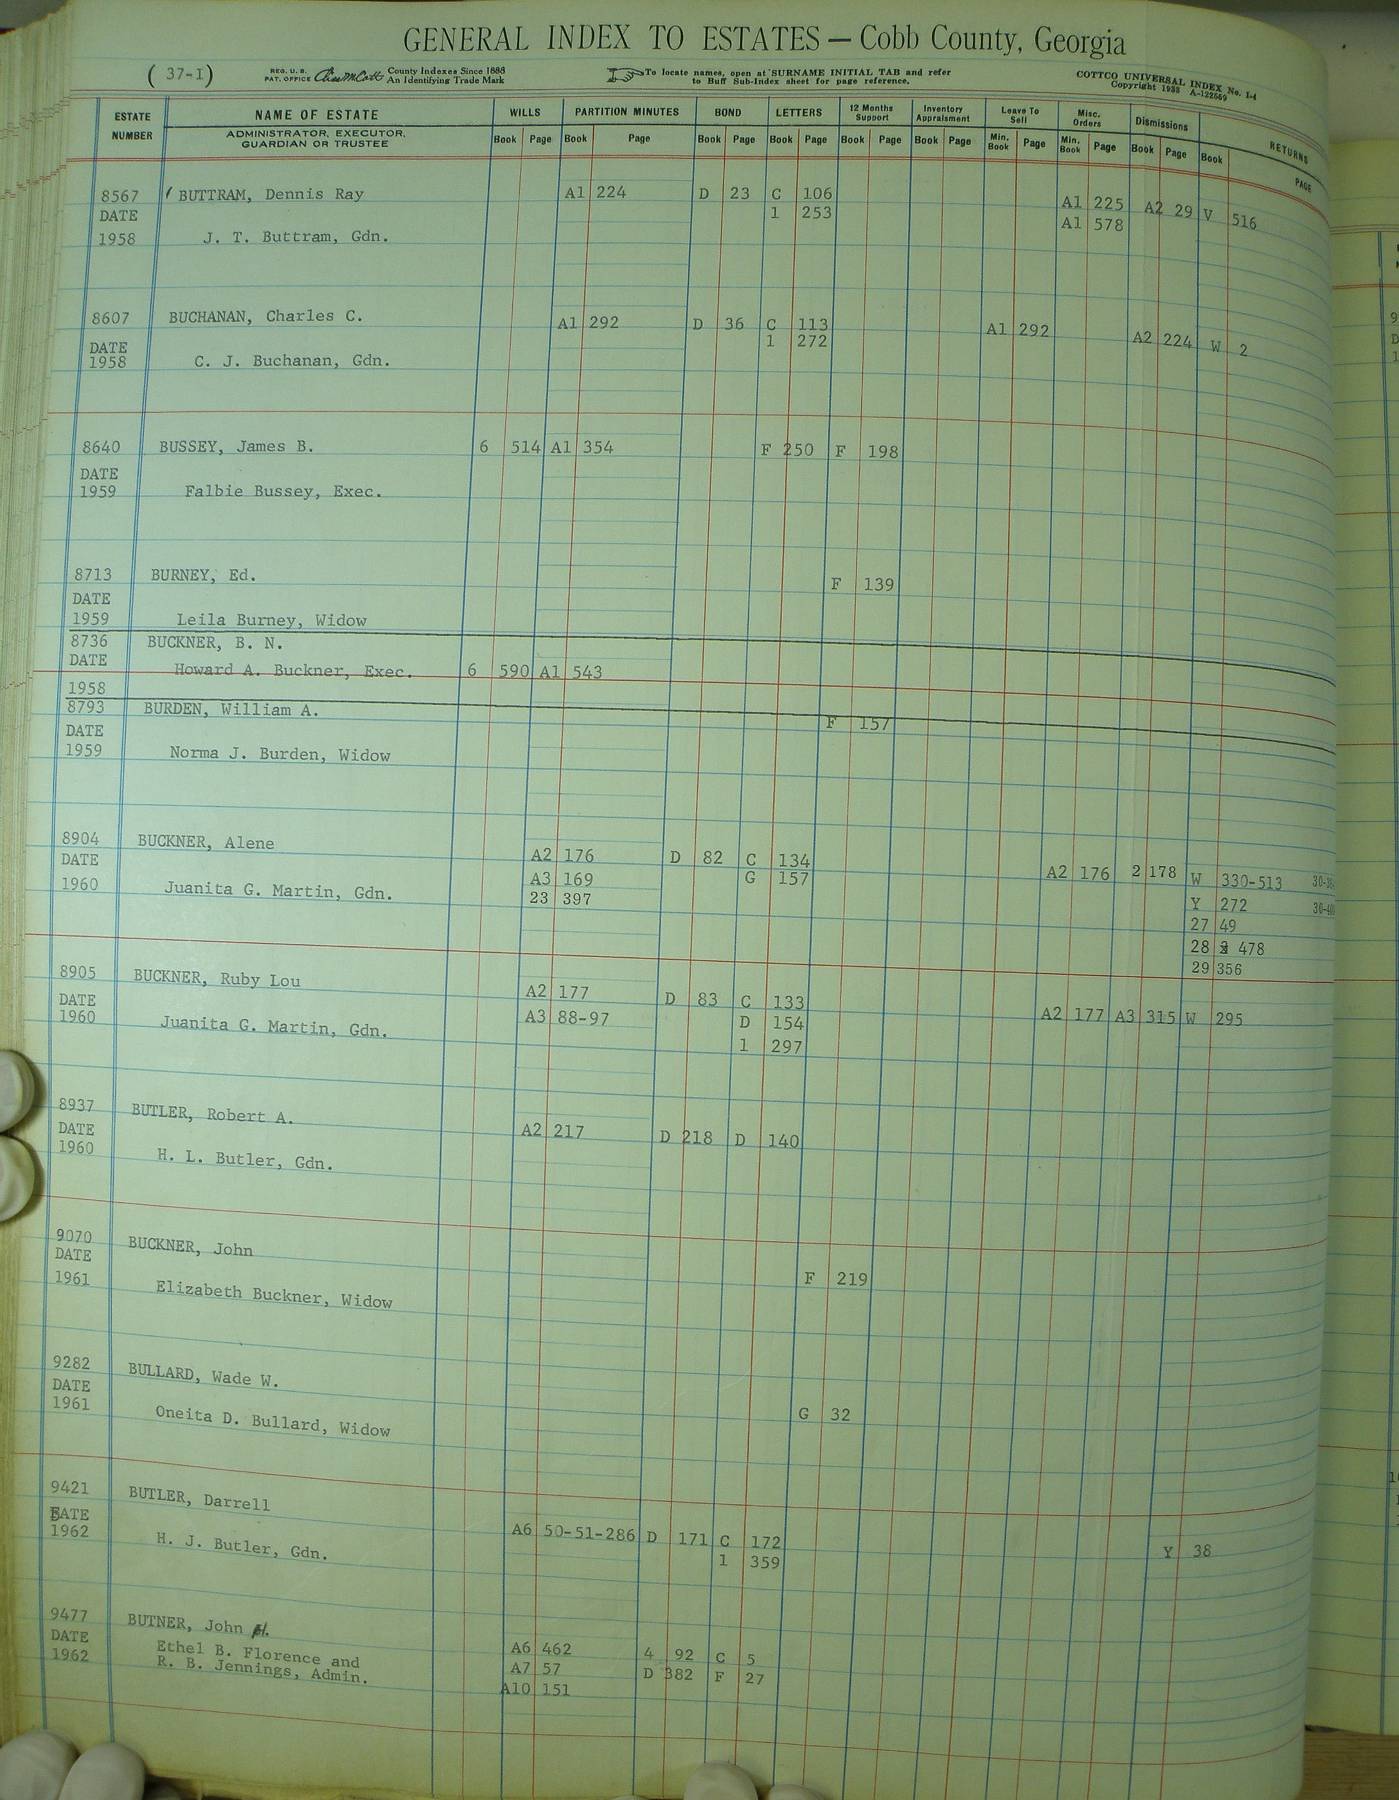 GENERAL INDEX TO ESTATES — Cobb County, Georgia
(37-I)
REG. U. S. PAT. OFFICE County Indexes Since 1888 An Identifying Trade Mark
To locate names, open at SURNAME INITIAL TAB and refer
to Buff Sub-Index sheet for page reference.
COTTCO UNIVERSAL INDEX No. I-4
Copyright 1938 A-122569
ESTATE NUMBER NAME OF ESTATE WILLS PARTITION MINUTES BOND LETTERS 12 Months Support Inventory Appraisment Leave To Sell Misc. Orders Dismissions RETURNS
ADMINISTRATOR, EXECUTOR, GUARDIAN OR TRUSTEE Book Page Book Page Book Page Book Page Book Page Book Page Min. Book Page Min. Book Page Book Page Book PAGE
8567 BUTTRAM, Dennis Ray A1 224 D 23 C 106 A1 225 A2 29 V 516
DATE 1 253 A1 578
1958 J. T. Buttram, Gdn.
8607 BUCHANAN, Charles C. A1 292 D 36 C 113 A1 292 A2 224 W 2
DATE 1 272
1958 C. J. Buchanan, Gdn.
8640 BUSSEY, James B. 6 514 A1 354 F 250 F 198
DATE
1959 Falbie Bussey, Exec.
8713 BURNEY, Ed. F 139
DATE
1959 Leila Burney, Widow
8736 BUCKNER, B. N.
DATE Howard A. Buckner, Exec. 6 590 A1 543
1958
8793 BURDEN, William A. F 157
DATE
1959 Norma J. Burden, Widow
8904 BUCKNER, Alene A2 176 D 82 C 134 A2 176 2 178 W 330-513
DATE A3 169 G 157 Y 272
1960 Juanita G. Martin, Gdn. 23 397 27 49
28 478
29 356
8905 BUCKNER, Ruby Lou A2 177 D 83 C 133 A2 177 A3 315 W 295
DATE A3 88-97 D 154
1960 Juanita G. Martin, Gdn. 1 297
8937 BUTLER, Robert A. A2 217 D 218 D 140
DATE
1960 H. L. Butler, Gdn.
9070 BUCKNER, John F 219
DATE
1961 Elizabeth Buckner, Widow
9282 BULLARD, Wade W. G 32
DATE
1961 Oneita D. Bullard, Widow
9421 BUTLER, Darrell A6 50-51-286 D 171 C 172 Y 38
DATE 1 359
1962 H. J. Butler, Gdn.
9477 BUTNER, John H. A6 462 4 92 C 5
DATE Ethel B. Florence and A7 57 D 382 F 27
1962 R. B. Jennings, Admin. A10 151